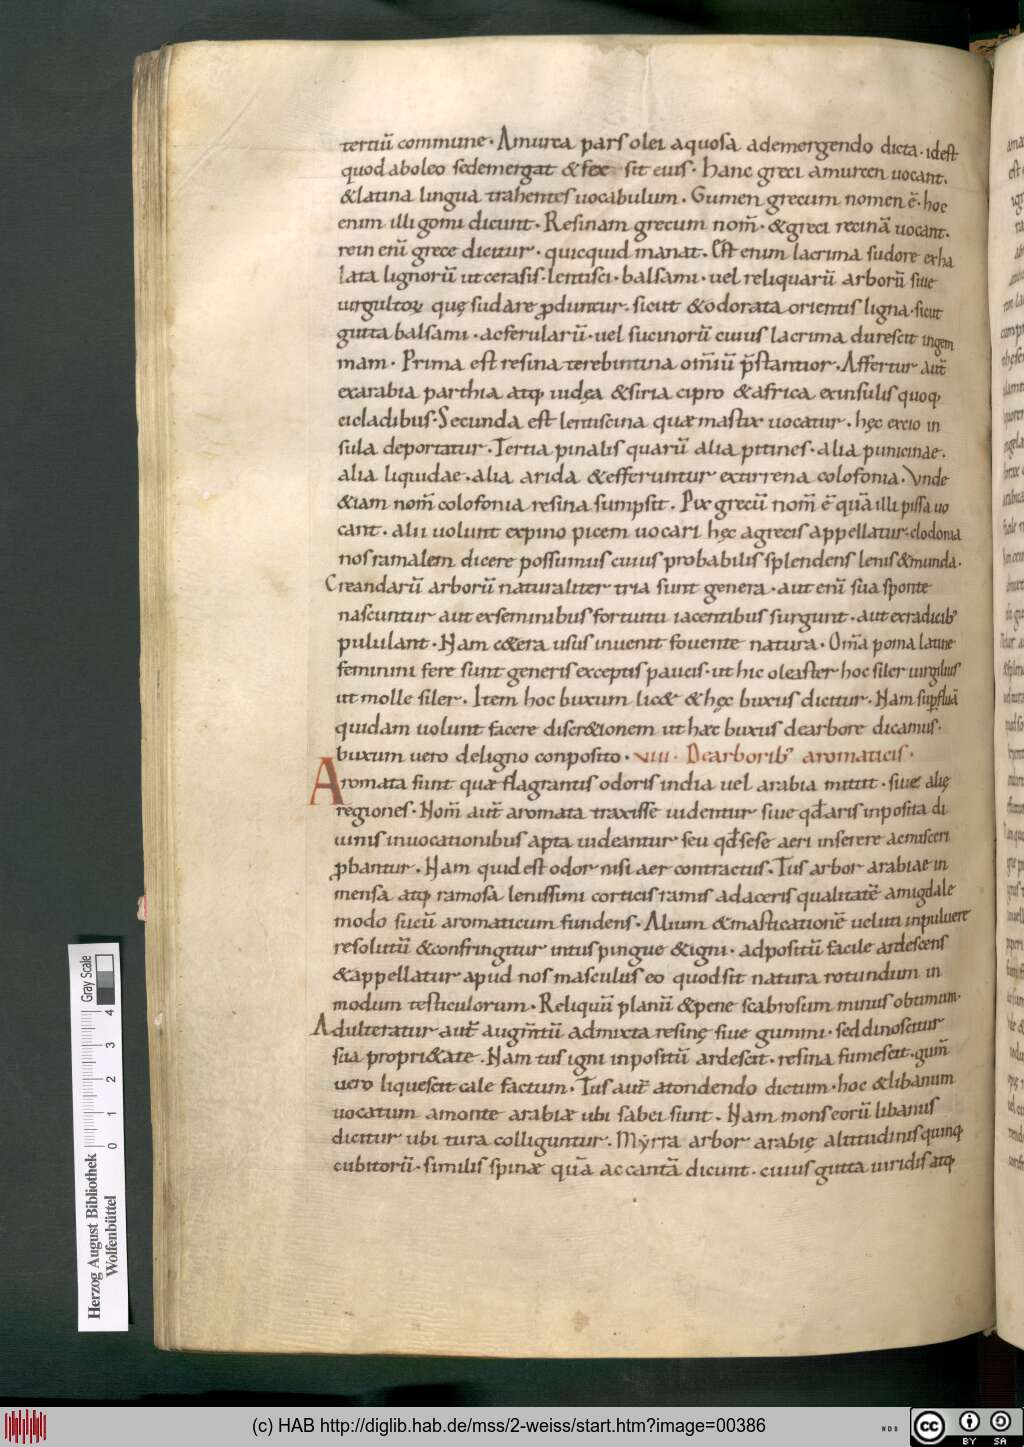 tertiū commune. Amurca pars olei aquosa ademergendo dicta. idest
quod aboleo sedemergat & fex sit eius. Hanc greci amurcen uocant.
& latina lingua trahentes uocabulum. Gumen grecum nomen ē. hoc
enim illi gomi dicunt. Resinam grecum nom̄. & greci recinā uocant.
rein enī grece dicitur. quicquid manat. Est enim lacrima sudore exha
lata lignorū ut cerasis. lentisci. balsami. uel reliquarū arborū siue
uirgultoꝝ quę sudare ꝓduntur. sicut & odorata orientis ligna. sicut
gutta balsami. ac ferularū. uel sucinorū cuius lacrima durescit ingem
mam. Prima est resina terebintina om̄iū p̄stantior. Affertur aut̄
exarabia parthia atq; iudęa & siria cipro & africa exinsulis quoq;
cicladibus. Secunda est lentiscina quæ mastix uocatur. hęc excio in
sula deportatur. Tertia pinalis quarū alia pitines. alia punicinae.
alia liquidae. alia arida & efferuntur extirrena colofonia. Vnde
& iam nom̄ colofonia resina sumpsit. Pix grecū nom̄ ē quā illi pissa uo
cant. alii uolunt expino picem uocari hęc agrecis appellatur. clodonia
nos ramalem dicere possumus cuius probabilis splendens lenis & munda.
Creandarū arborū naturaliter tria sunt genera. aut enī sua sponte
nascuntur aut exseminibus fortuitu iacentibus surgunt. aut exradicib;
pululant. Nam c&era usus inuenit fouente natura. Om̄a poma latine
feminini fere sunt generis exceptis paucis. ut hic oleaster hoc siler uirgilius
ut molle siler. Item hoc buxum lic& & hęc buxus dicitur. Nam suꝑfluā
quidam uolunt facere discr&ionem ut hæc buxus dearbore dicamus.
buxum uero deligno conposito. VIII. Dearborib; aromaticis.
Aromata sunt quæ flagrantis odoris india uel arabia mittit. siue alię
regiones. Nom̄ aut̄ aromata traxisse uidentur siue qđ aris inposita di
uinis inuocationibus apta uideantur seu qđ sese aeri inserere ac misceri
ꝓbantur. Nam quid est odor nisi aer contractus. Tus arbor arabiae in
mensa atq; ramosa lenissimi corticis ramis ad aceris qualitatē amigdale
modo sucū aromaticum fundens. Alium & masticationē ueluti inpuluere
resolutū & confringitur intus pingue & igni. adpositū facile ardescens
& appellatur apud nos masculus eo quod sit natura rotundum in
modum testiculorum. Reliquū planū & pene scabrosum minus obtimum.
Adulteratur aut̄ augm̄tū admixta resinę siue gummi. sed dinoscitur
sua propri&ate. Nam tus igni inpositū ardescit. resina fumescit. gum̄
uero liquescit cale factum. Tus aut̄ atondendo dictum. hoc & libanum
uocatum amonte arabiæ ubi sabei sunt. Nam mons eorū libanus
dicitur ubi tura colliguntur. Mẏrra arbor arabię altitudinis quinq;
cubitorū. similis spinæ quā accantā dicunt. cuius gutta uiridis atq;
Gray Scale
0 1 2 3 4
Herzog August Bibliothek
Wolfenbüttel
(c) HAB http://diglib.hab.de/mss/2-weiss/start.htm?image=00386
cc BY SA